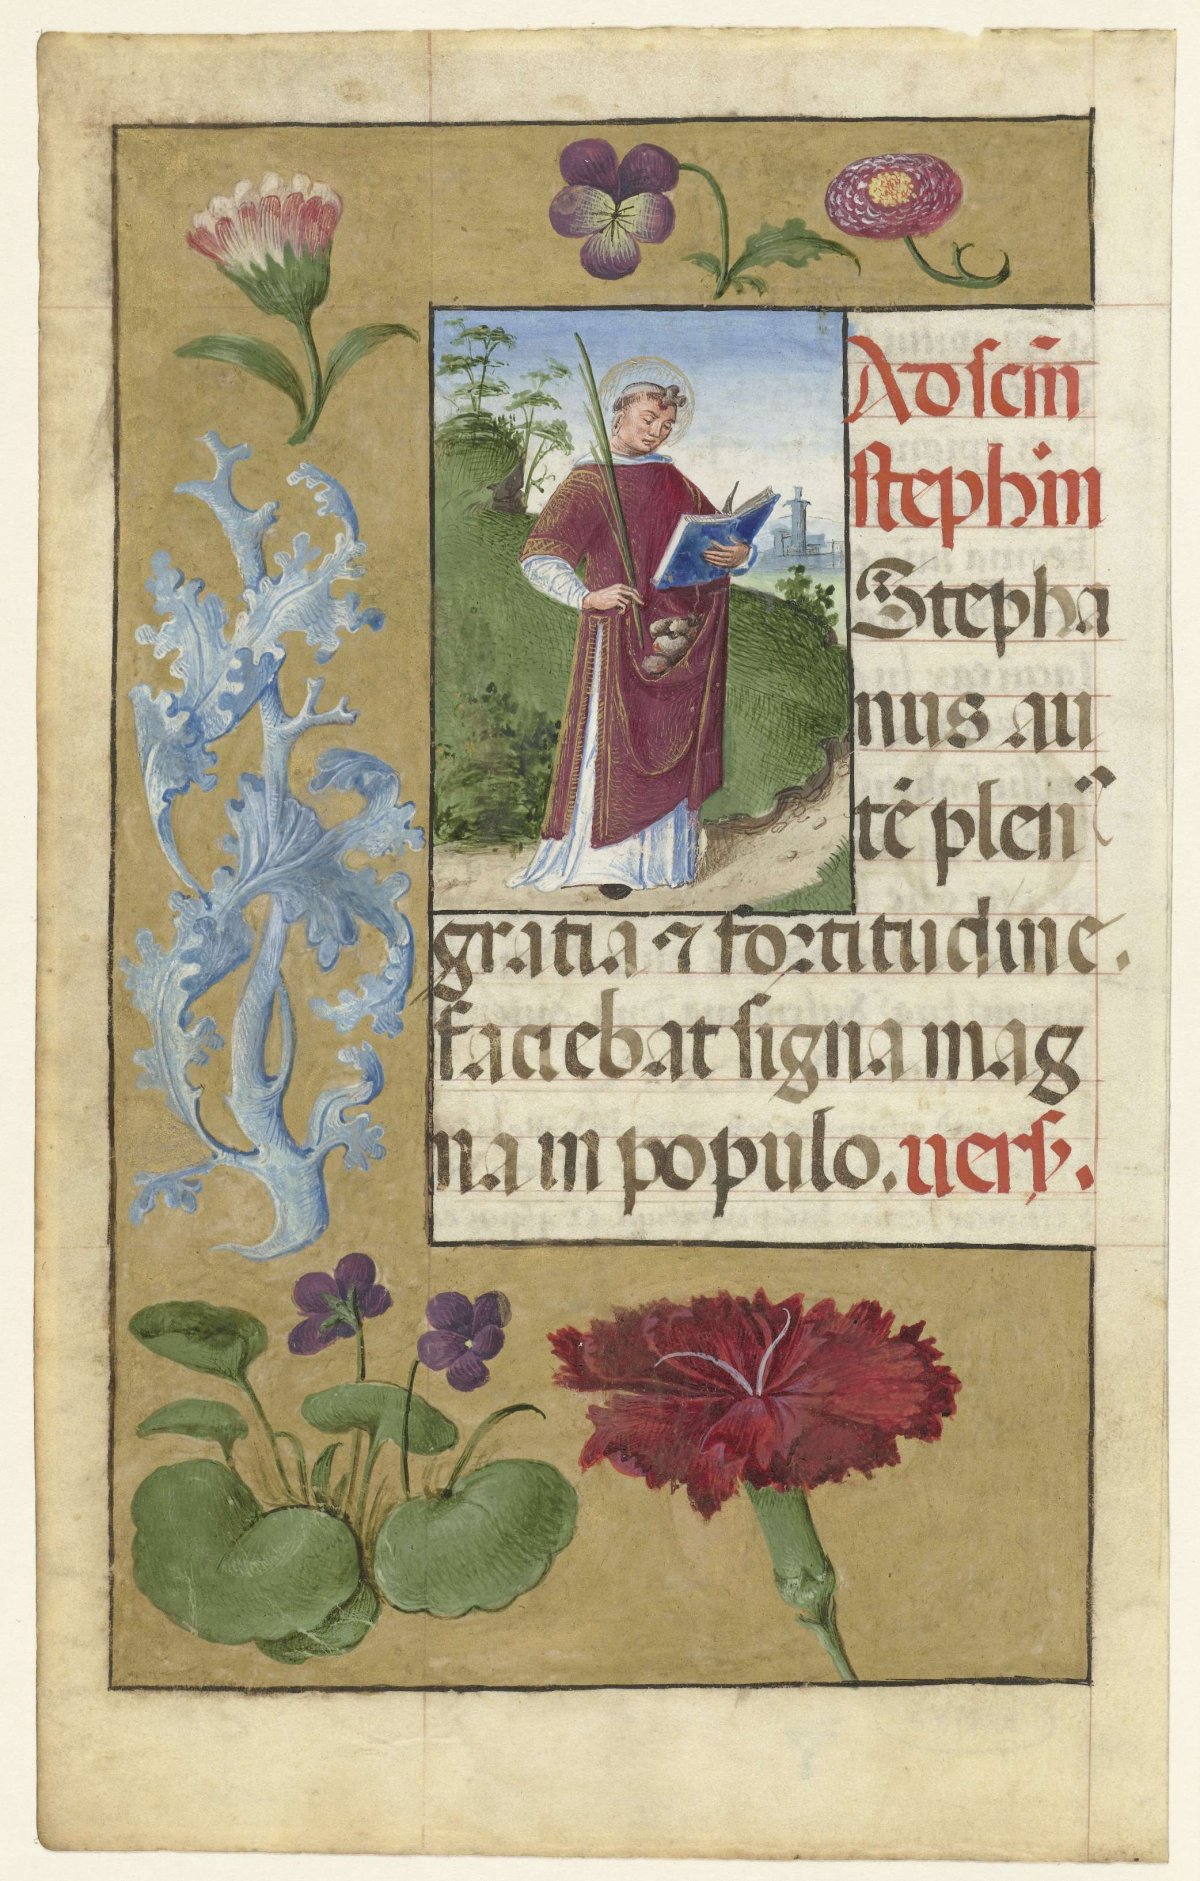 Ad scm̄
stephm̄
Stepha
nus au
tē plenꝰ
gratia ⁊ fortitudine.
faciebat signa mag
na in populo. vers.